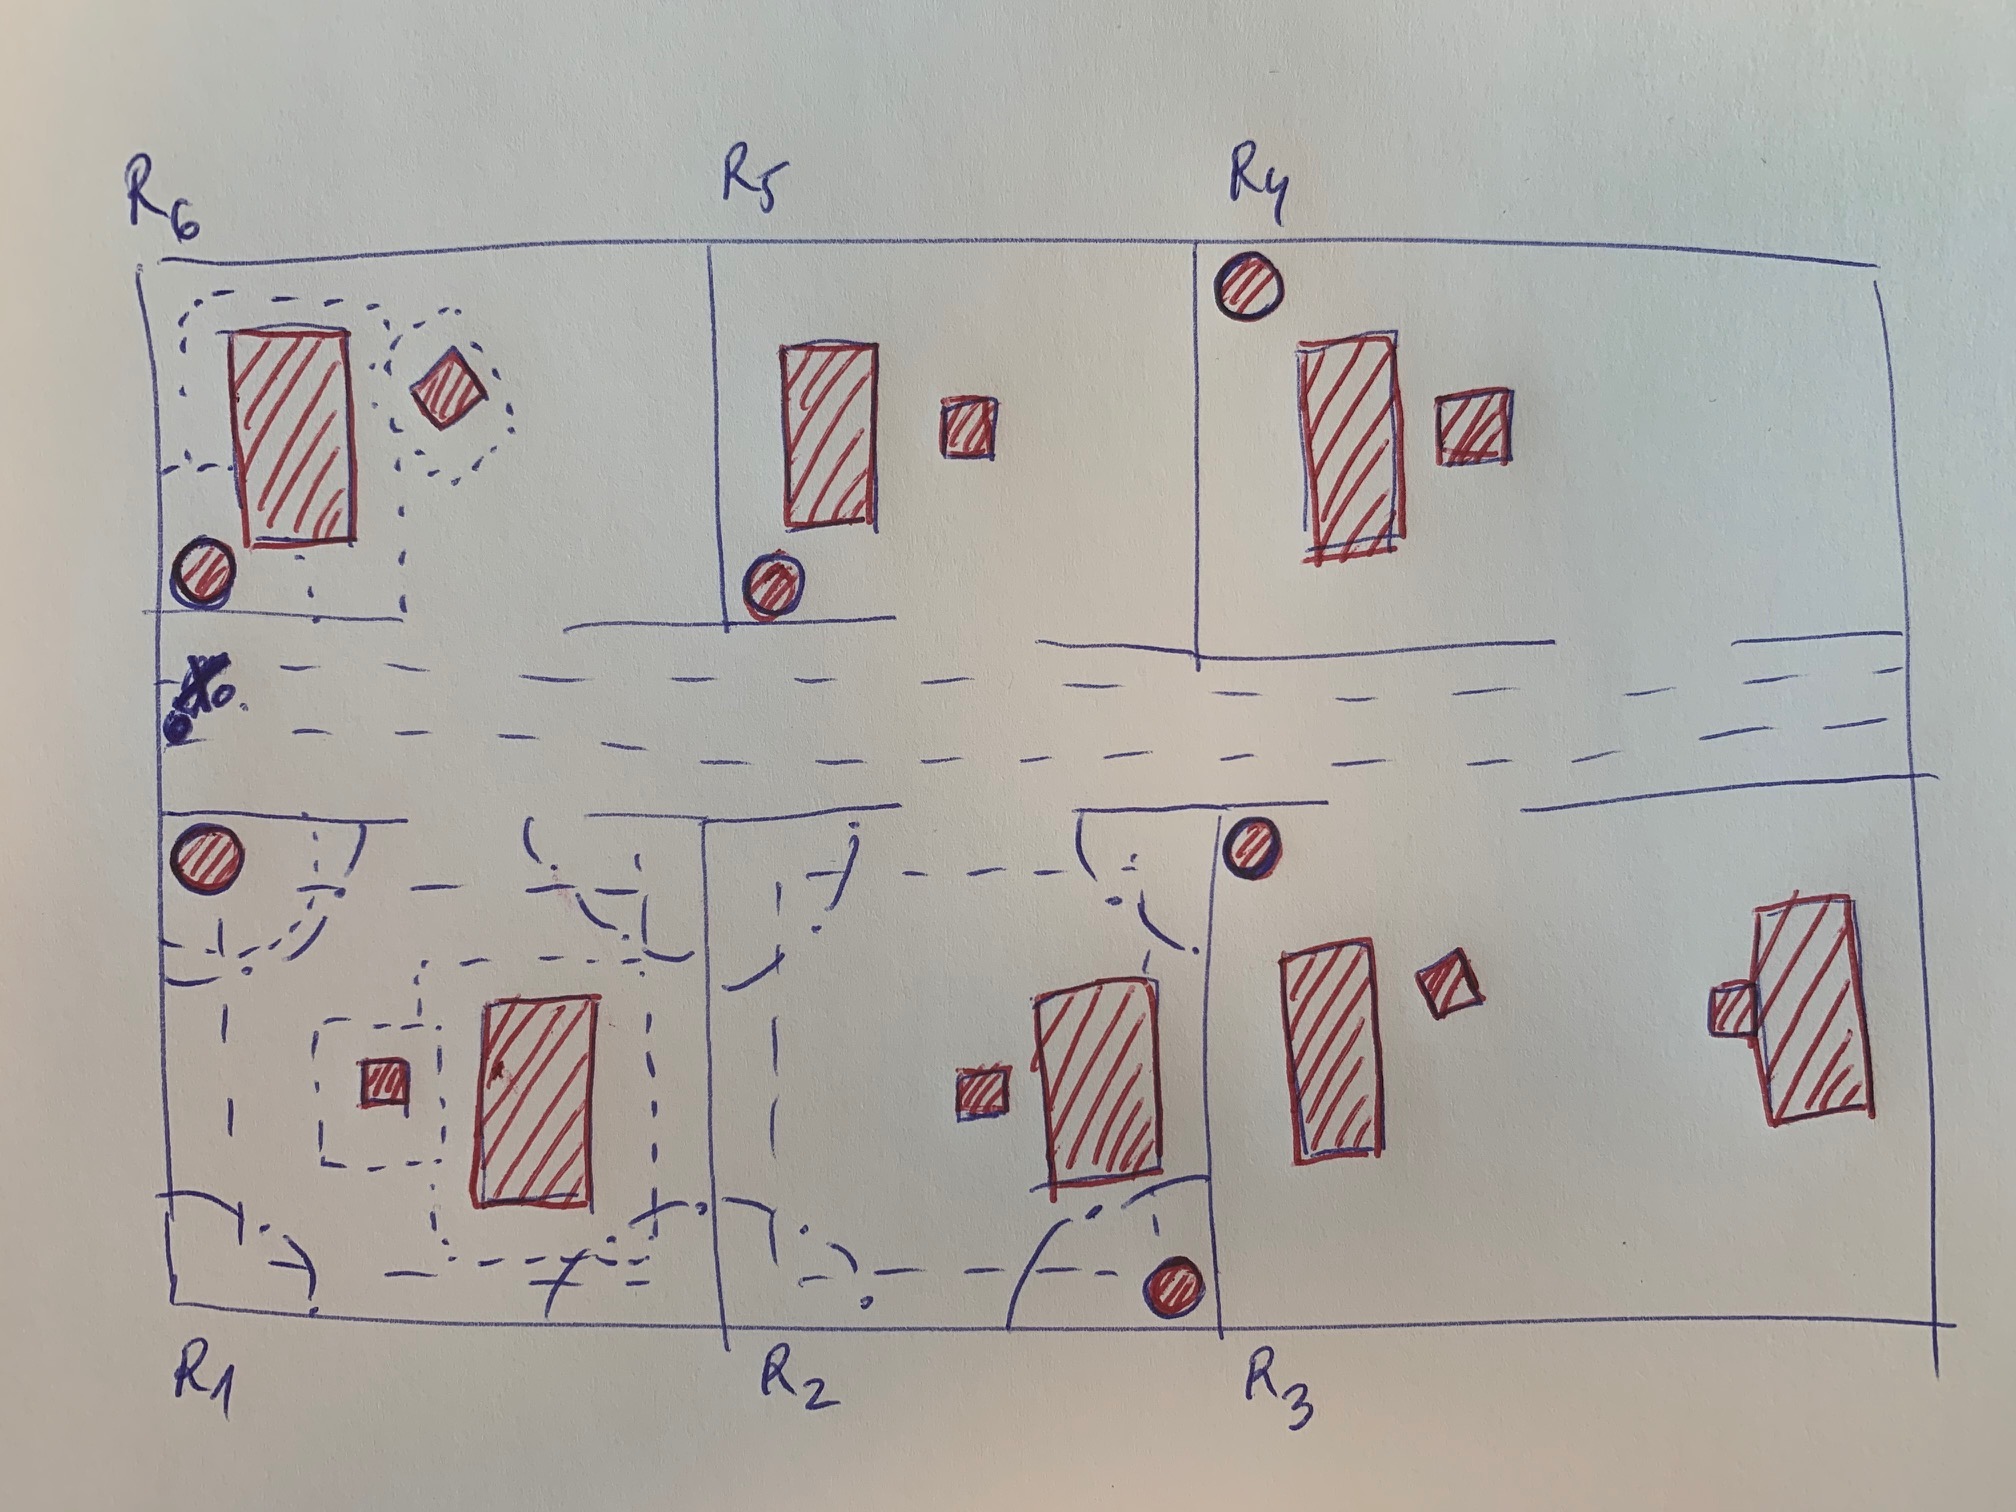 R6 R5 R4
X0
R1 R2 R3